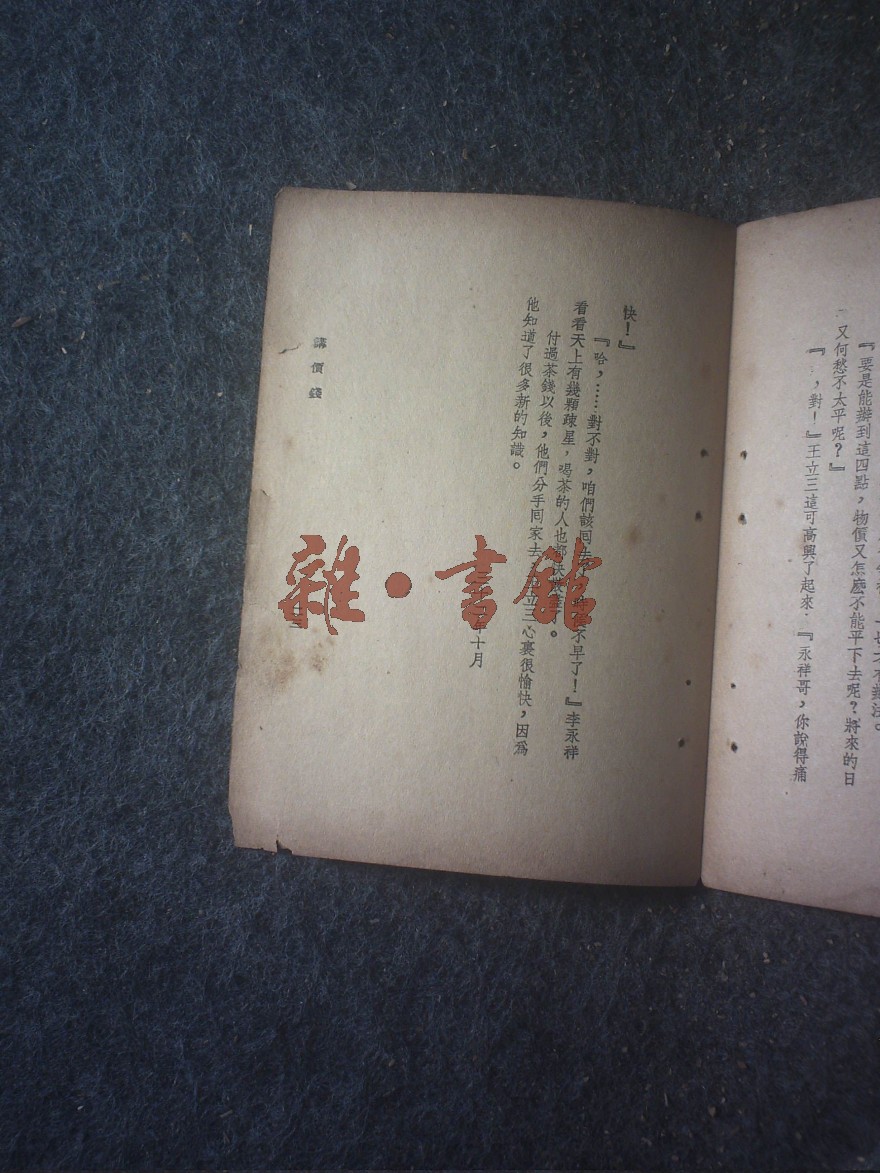 法。
『要是能辦到這四點，物價又怎麽不能平下去呢？將來的日
又何愁不太平呢？』
，對！』王立三這可高興了起來：『永祥哥，你說得痛
快！』
『哈，……對不對，咱們該回去不早了！』李永祥
看看天上有幾顆疎星，喝茶的人也都快
付過茶錢以後，他們分手回家去立三心裏很愉快，因爲
他知道了很多新的知識。
年十月
講價錢
雜・書館